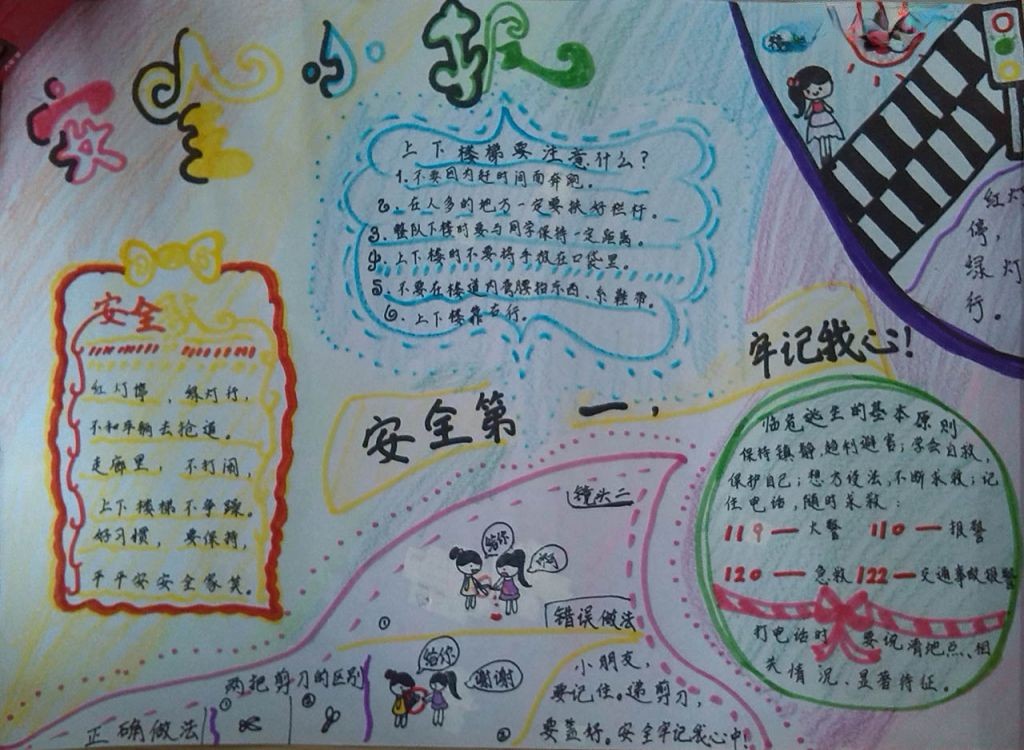 安全小报
上下楼梯要注意什么?
1.不要因为赶时间而奔跑。
2.在人多的地方一定要扶好栏杆。
3.整队下楼时要与同学保持一定距离。
4.上下楼的不要将手放在口袋里。
5.不要在楼道内弯腰拾东西、系鞋带。
6.上下楼靠右行。
红灯
停,
绿灯
行。
安全
红灯停,绿灯行,
不和车辆去抢道。
走廊里,不打闹,
上下楼梯不争躁。
好习惯,要保持,
平平安安全家笑。
安全第一,
牢记我心!
临危逃生的基本原则
保持镇静,趋利避害;学会自救,
保护自己;想方设法,不断求救;记
住电话,随时求救:
119—火警 110—报警
120—急救 122—交通事故报警
打电话时要说清地点、相
关情况、显著特征。
镜头二
给你
①
错误做法
两把剪刀的区别
① ②
正确做法
给你
谢谢
②
小朋友,
要记住。递剪刀,
要盖好。安全牢记我心中!